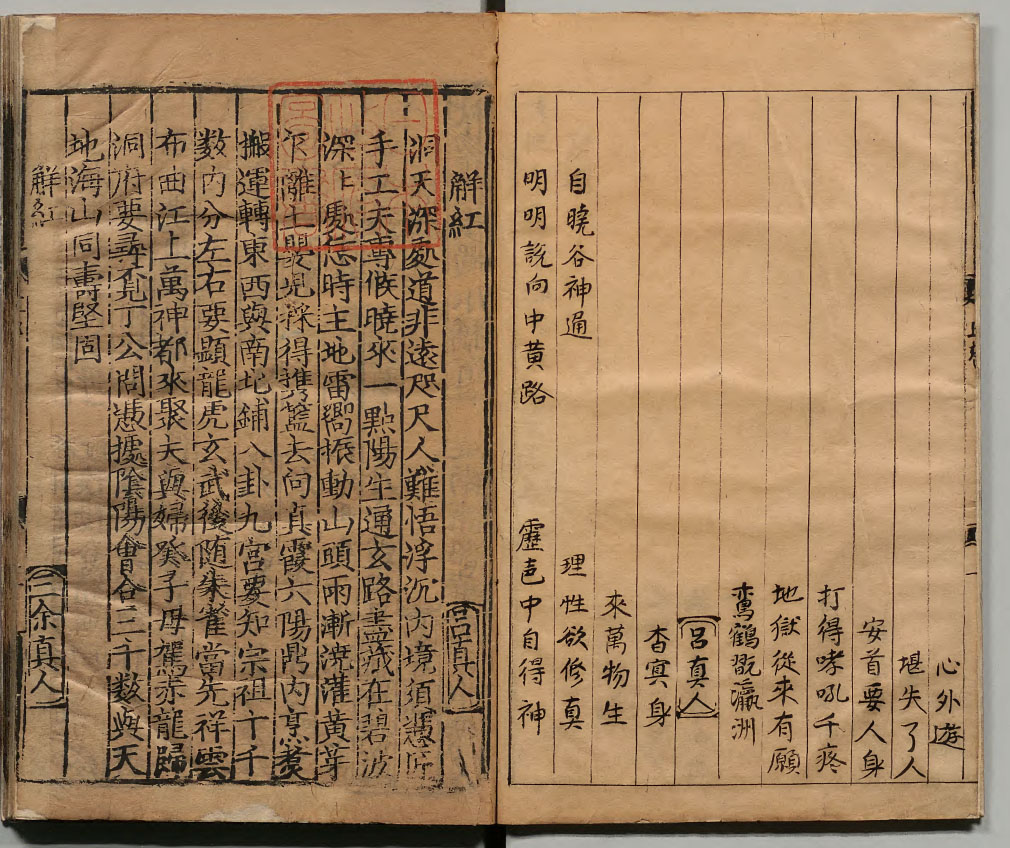 心外遊
堪失了人
安首要人身
打得哮吼千疼
地獄從來有願
鸞鶴翫瀛洲
呂真人
杳冥身
來萬物生
自曉谷神通 理性欲修真
明明說向中黃路 霹 中自得神
解紅 呂真人
洞天深處道非遠咫尺人難悟浮沉内境須憑匠
手工夫專候曉來一點陽生通玄路盡藏在碧波
深上處 時主地雷嚮振動山頭雨漸澆灌黃芽
嬰兒採得携籃去向貞霞六陽鼎内烹煑
搬運轉東西與南北鋪八卦九宮要知宗祖十千
数内分左右要顯龍虎玄武後随朱雀當先祥雲
布曲江上萬神都來聚夫與婦癸子母駕赤龍歸
洞府要尋丕見丁公問憑據陰陽會合三千数與天
地海山同壽堅固
解紅 三余真人